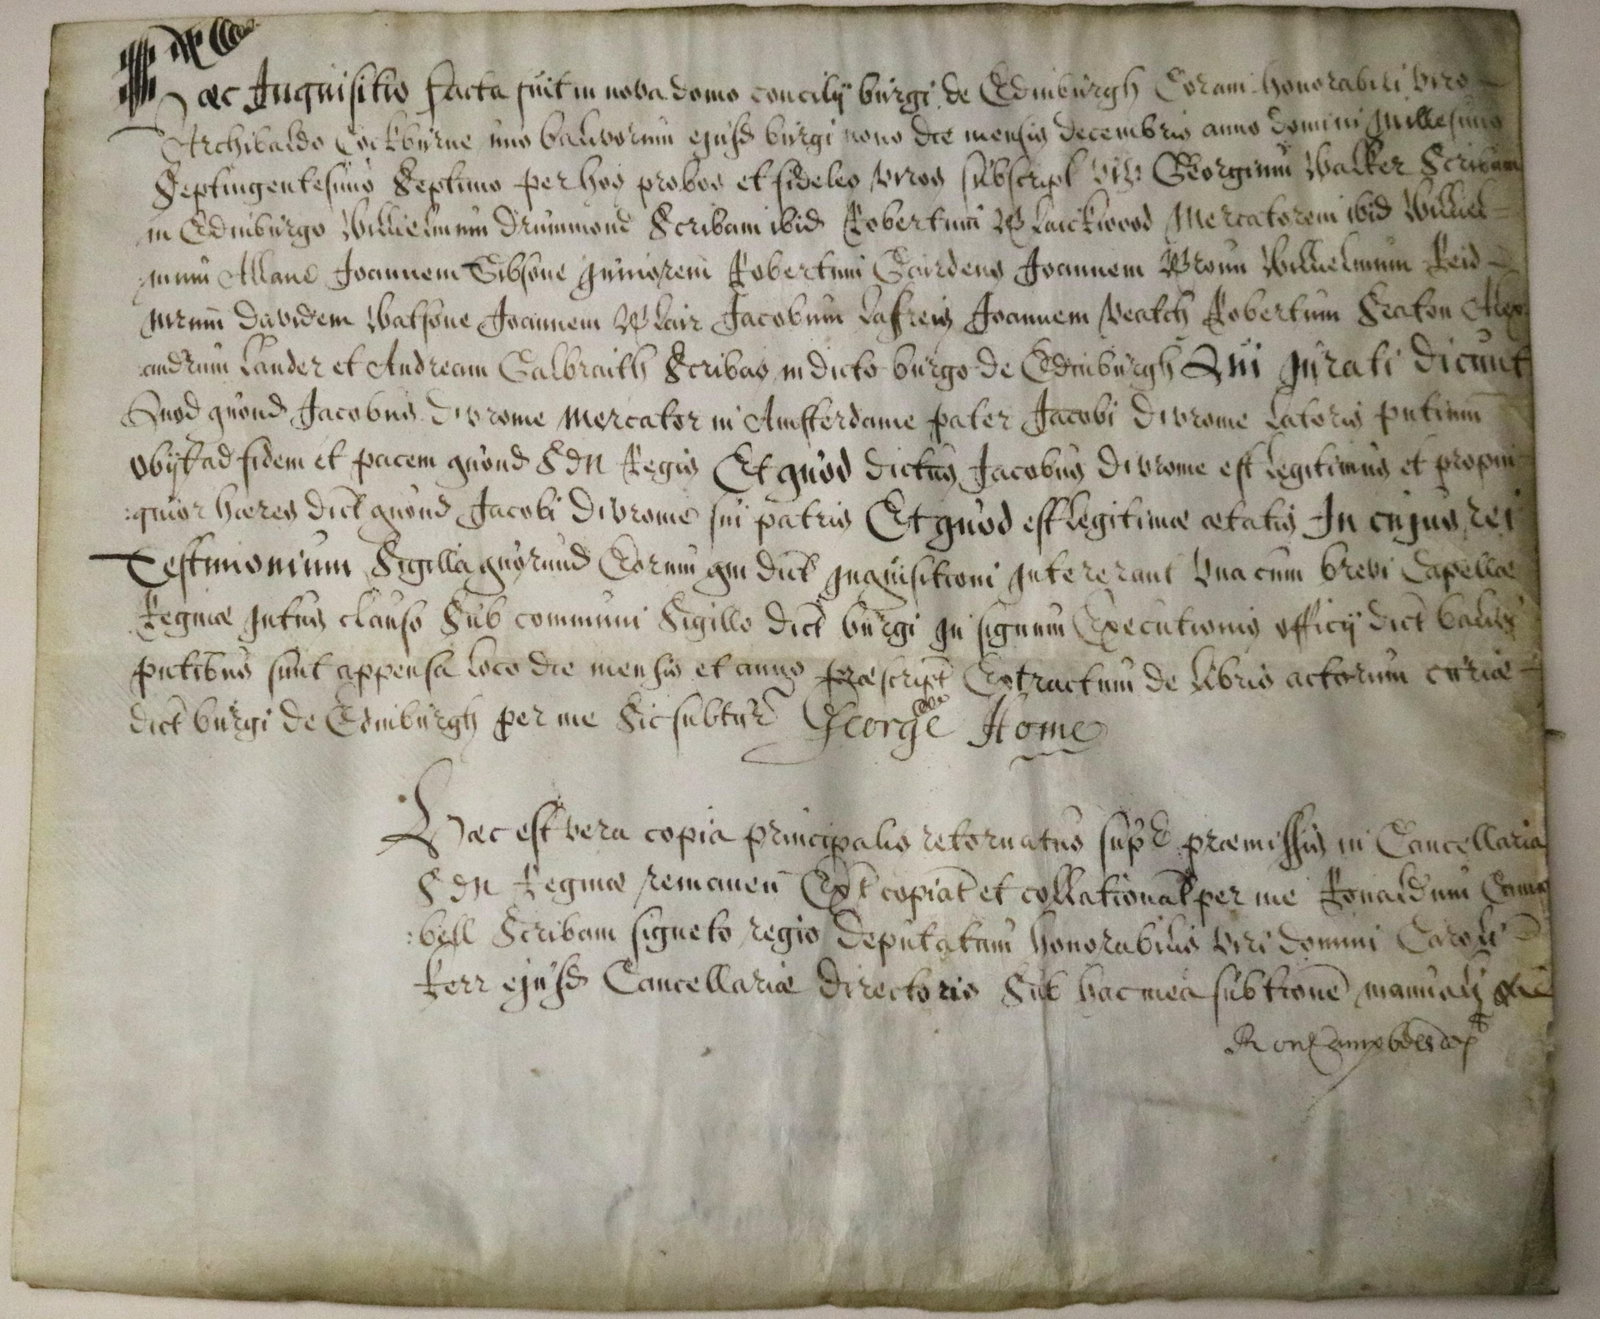 Hæc Inquisitio facta fuit in nova domo concilij burgi de Edinburgh Coram honorabili viro
Archibaldo Cockburne uno balivorum ejusd burgi nono die mensis decembris anno domini Millesimo
Septingentesimo Septimo per hos probos et fideles viros subscript viz Georgium Walker Scribam
in Edinburgo Willielmum Drummond Scribam ibid Robertum Blackwood Mercatorem ibid Williel=
:mum Allane Joannem Gibsone juniorem Robertum Gairdens Joannem Broun Willielmum Reid
Davidem Watsone Joannem Blair Jacobum Lafreis Joannem Veatch Robertum Seaton Alex
:andrum Lauder et Andream Galbraith Scribas in dicto burgo de Edinburgh Qui jurati dicunt
Quod quond Jacobus divrome Mercator in Amsterdame pater Jacobi divrome latoris pntium
obijt ad fidem et pacem quond S D N Regis Et quod dictus Jacobus divrome est legitimus et propin
:quior hæres dict quond Jacobi divrome sui patris Et quod est legitimæ ætatis In cujus rei
Testimonium Sigilla quorund Eorum qui dict inquisitioni intererant una cum brevi Capellæ
Regiæ intus clauso Sub communi Sigillo dict burgi in signum Executionis officij dict balivi
pntibus sunt appensa loco die mensis et anno præscript Extractum de libris actorum curiæ
dict burgi de Edinburgh per me Sic subtur George Home
Hæc est vera copia principalis retornatus supr præmissis in Cancellaria
S D N Reginæ remanen Ext copiat et collationat per me Ronaldum Camp
:bell Scribam signeto regio deputatum honorabilis viri domini Caroli
Kerr ejusd Cancellariæ directoris Sub hac mea subtione manuali
Ron Campbell dep